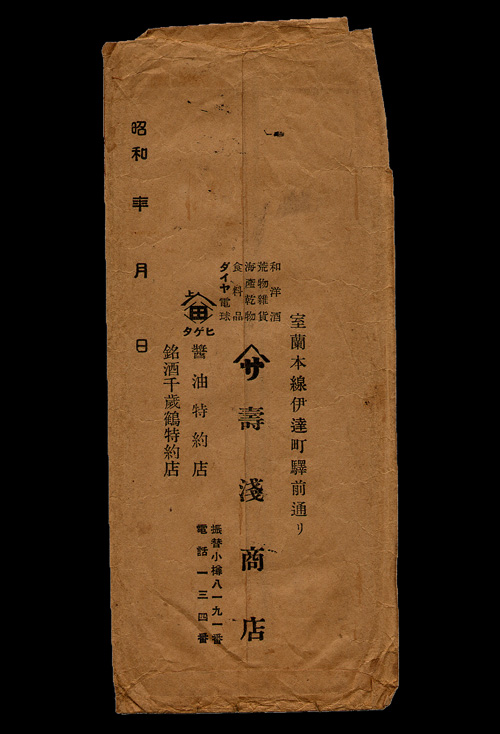 室蘭本線伊達町驛前通リ
和洋酒
荒物雑貨
海産乾物
食料品
ダイヤ電球
サ 壽淺商店
振替小樽八一九一番
電話一三四番
上田
ヒゲタ
醬油特約店
銘酒千歲鶴特約店
昭和 年 月 日